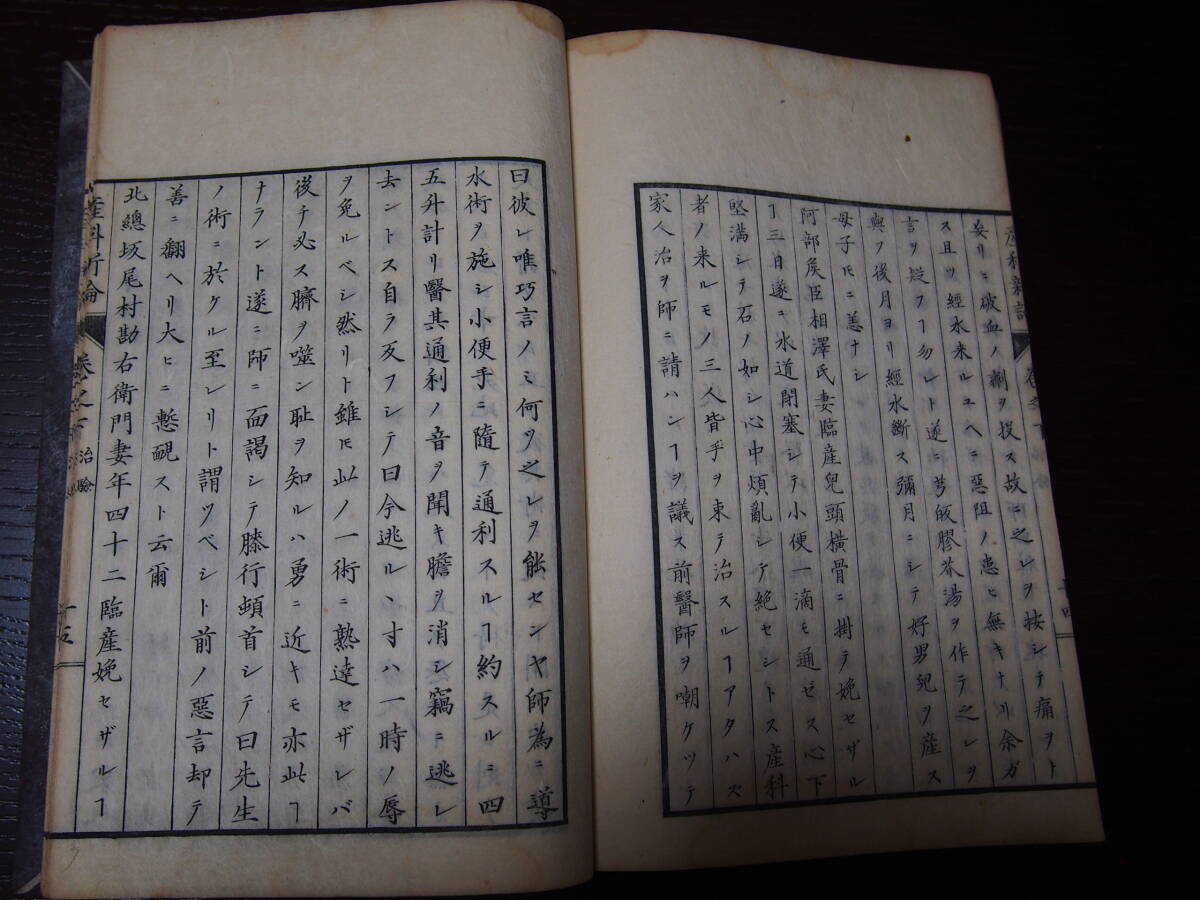 妄リニ破血ノ劑ヲ投ス故ニ之レヲ按シテ痛ヲト
ス且ツ經水来ルユヘニ惡阻ノ患ヒ無キナリ余ガ
言ヲ疑フヿ勿レト遂ニ芎皈膠芥湯ヲ作テ之レヲ
與フ後月ヨリ經水斷ス彌月ニシテ好男兒ヲ産ス
母子𪜈ニ恙ナシ
阿部矦臣相澤氏妻臨産兒頭横骨ニ掛テ娩セザル
ヿ三日遂ニ水道閉塞シテ小便一滴モ通ゼス心下
堅満シテ石ノ如シ心中煩亂シテ絶セントス産科
者ノ来ルモノ三人皆手ヲ束テ治スルヿアタハズ
家人治ヲ師ニ請ハンヿヲ議ス前醫師ヲ嘲ケツテ
曰彼レ唯巧言ノミ何ソ之レヲ能センヤ師為ニ導
水術ヲ施シ小便手ニ隨テ通利スルヿ約スルニ四
五升計リ醫其通利ノ音ヲ聞キ膽ヲ消シ竊ニ逃レ
去ントス自ラ反フシテ曰今逃ルヽ寸ハ一時ノ辱
ヲ免ルベシ然リト雖𪜈此ノ一術ニ熟達セザレバ
後テ必ス臍ヲ噬ン耻ヲ知ルハ勇ニ近キモ亦此ヿ
ナラント遂ニ師ニ面謁シテ膝行頓首シテ曰先生
ノ術ニ於ケル至レリト謂ツベシト前ノ惡言却テ
善ニ翻ヘリ大ヒニ慙䩄スト云爾
北總坂尾村勘右衛門妻年四十二臨産娩セザルヿ
産科新論
卷之下
治驗
十五